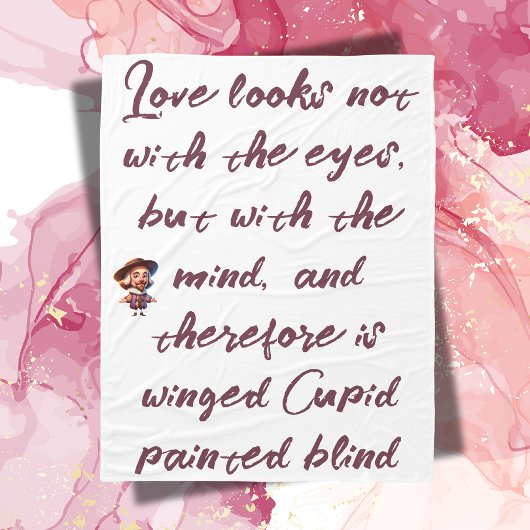 Love looks not
with the eyes,
but with the
mind, and
therefore is
winged Cupid
painted blind